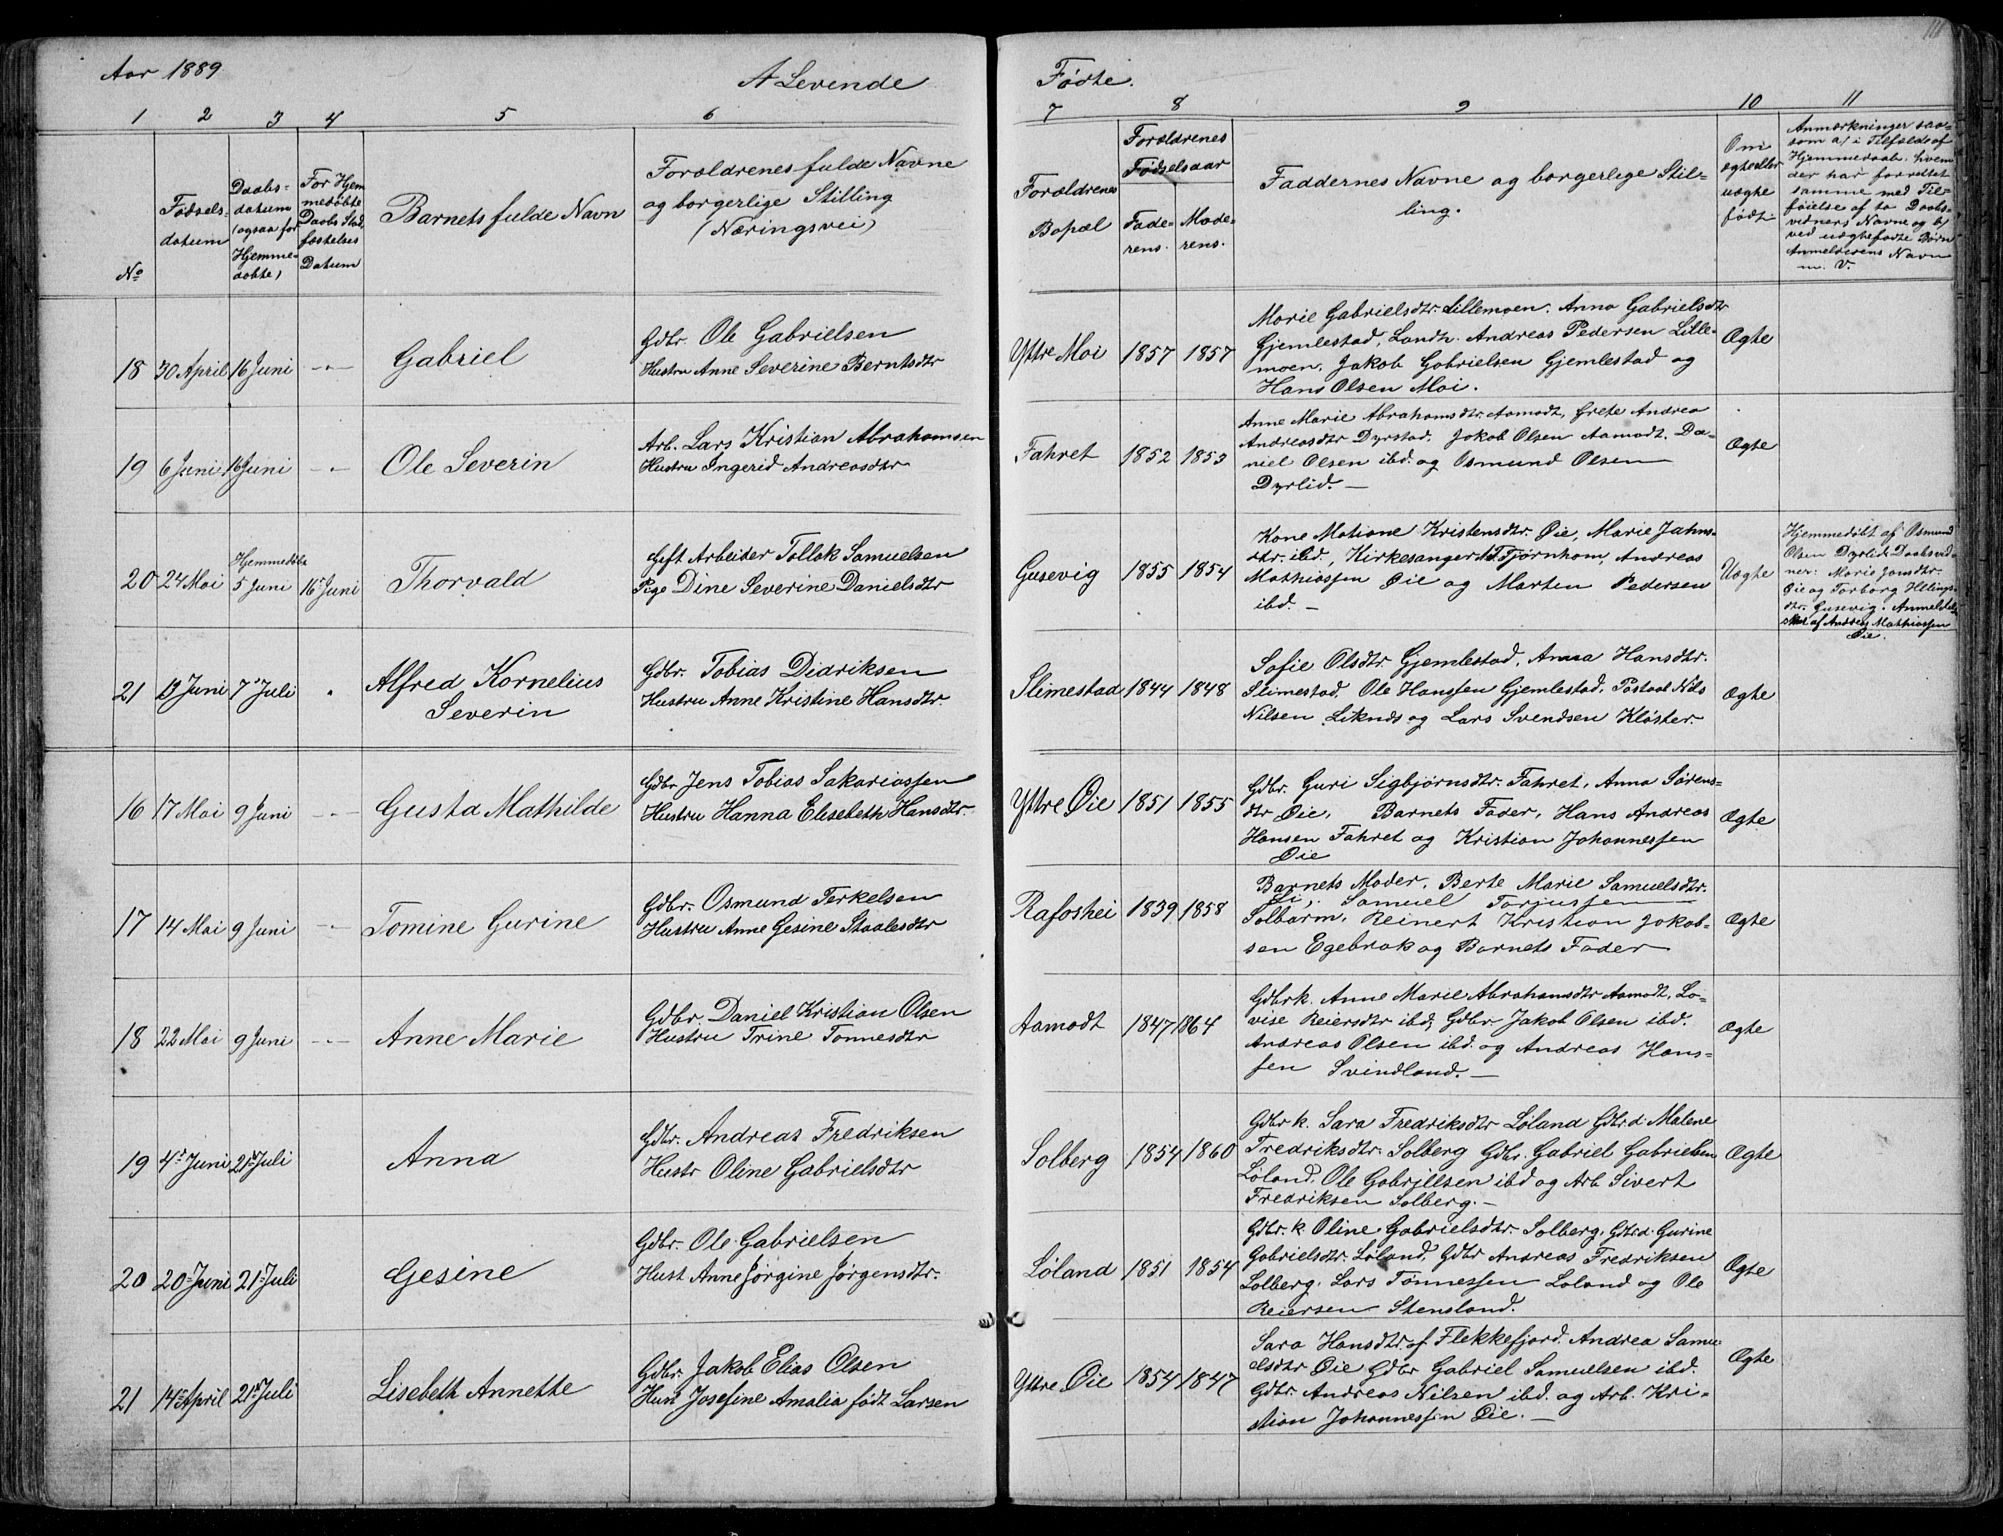 Aar 1889
A Levende
Fødte.
1 2 3 4 5 6 7 8 9 10 11
No
Fødsels-
datum
Daabs-
datum
(ogsaa for
Hjemme-
døbte)
For Hjem
medøbte
Daabs Stad
fæstelses
Datum
Barnets fulde Navn
Forældrenes fulde Navne
og borgerlige Stilling
(Næringsvei)
Forældrenes
Bopæl
Forældrenes
Fødselsaar
Fade-
rens.
Mode-
rens.
Faddernes Navne og borgerlige Stil-
ling.
Om
ægte eller
uægte
født
Anmærkninger saa-
som a) i Tilfælde af
Hjemmedaab, hvem
der har forrettet
samme med Til-
føielse af to Daabs-
vidners Navne og b)
ved uægtefødte Børn
Anmelderens Navn
m. V.
18 30 April 16 Juni Gabriel
Gdbr. Ole Gabrielsen
Hustru Anne Severine Berntsdtr
Yttre Moi 1857 1857
Marie Gabrielsdtr Lillemoen. Anna Gabrielsdtr
Gjemlestad, Landh. Andreas Pedersen Lille-
moen, Jakob Gabrielsen Gjemlestad og
Hans Olsen Moi.
Ægte
19 6 Juni 16 Juni Ole Severin
Arb. Lars Kristian Abrahamsen
Hustru Ingerid Andreasdtr
Fahret 1852 1853
Anne Marie Abrahamsdtr Aamodt, Grete Andrea
Andreasdtr Dyrstad, Jakob Olsen Aamodt, Da-
niel Olsen ibd. og Osmund Olsen
Dyrlid. —
Ægte
20 24 Mai Hjemmedøbt
5 Juni 16 Juni Thorvald
Gift Arbeider Tollak Samuelsen
Pige Dine Severine Danielsdtr
Gusevig 1855 1854
Kone Matiane Kristensdtr. Øie, Marie Jahns-
dtr. ibd, Kirkesanger Tjørnhom, Andreas
Mathiassen Øie og Marten Pedersen
ibd. —
Uægte
Hjemmedøbt af Osmund
Olsen Dyrlid. Daabsvid
ner: Marie Jansdtr.
Øie og Torborg
dtr. Gusevig. Anmeldelse
af Andreas Mathiassen
Øie.
21 13 Juni 7 Juli Alfred Kornelius
Severin
Gdbr. Tobias Didriksen
Hustru Anne Kristine Hansdtr.
Slimestad 1844 1848
Sofie Olsdtr. Gjemlestad. Anna Hansdtr.
Slimestad. Ole Hanssen Gjemlestad, Nils
Nilsen og Lars Svendsen Kløster.
Ægte
16 17 Mai 9 Juni Gusta Mathilde
Gdbr Jens Tobias Sakariassen
Hustru Hanna Elisebeth Hansdtr.
Yttre Øie 1851 1855
Gdbr. Guri Sigbjørnsdtr. Fahret, Anna Sørens-
dtr Øie, Barnets Fader, Hans Andreas
Hansen Fahret og Kristian Johannessen
Øie
Ægte
17 14 Mai 9 Juni Tomine Gurine
Gdbr. Osmund Terkelsen
Hustru Anne Gesine Staalesdtr
Rafoshei 1839 1858
Barnets Moder, Berte Marie Samuelsdtr.
Samuel Torjussen
Solbarm, Reinert Kristian Jakob-
sen Egebrok og Barnets Fader
Ægte
18 22 Mai 9 Juni Anne Marie
Gdbr Daniel Kristian Olsen
Hustru Trine Tønnesdtr
Aamodt 1847 1864
Gdbrk. Anne Marie Abrahamsdtr Aamodt, Lo-
vise Reiersdtr ibd, Gdbr Jakob Olsen ibd.
Andreas Olsen ibd. og Andreas Hans-
sen Svindland. —
Ægte
19 4 Juni 21 Juli Anna
Gdbr. Andreas Fredriksen
Hustr Oline Gabrielsdtr
Solberg 1854 1860
Gdbr k. Sara Fredriksdtr Løland Gdbr.d Malene
Fredriksdtr. Solberg Gdbr. Gabriel Gabrielsen
Løland, Ole Gabrielsen ibd og Arb Sivert
Fredriksen Solberg. —
Ægte
20 20 Juni 21 Juli Gesine
Gdbr. Ole Gabrielsen
Hust Anne Jørgine Jørgensdtr.
Løland 1851 1854
Gdbr k. Oline Gabrielsdtr. Solberg, Gdbrd. Gurine
Gabrielsdtr Løland, Gdbr Andreas Fredriksen
Solberg, Lars Tønnessen Løland og Ole
Reiersen Stensland.
Ægte
21 14 April 21 Juli Lisebeth Annette
Gdbr. Jakob Elias Olsen
Hust Josefine Amalia født Larsen
Yttre Øie 1854 1847
Sara Hansdtr. af Flekkefjord. Andrea Samu-
elsdtr Øie Gdbr Gabriel Samuelsen ibd.
Gdbr. Andreas Nilsen ibd. og Arb. Kri-
stian Johannessen Øie. —
Ægte